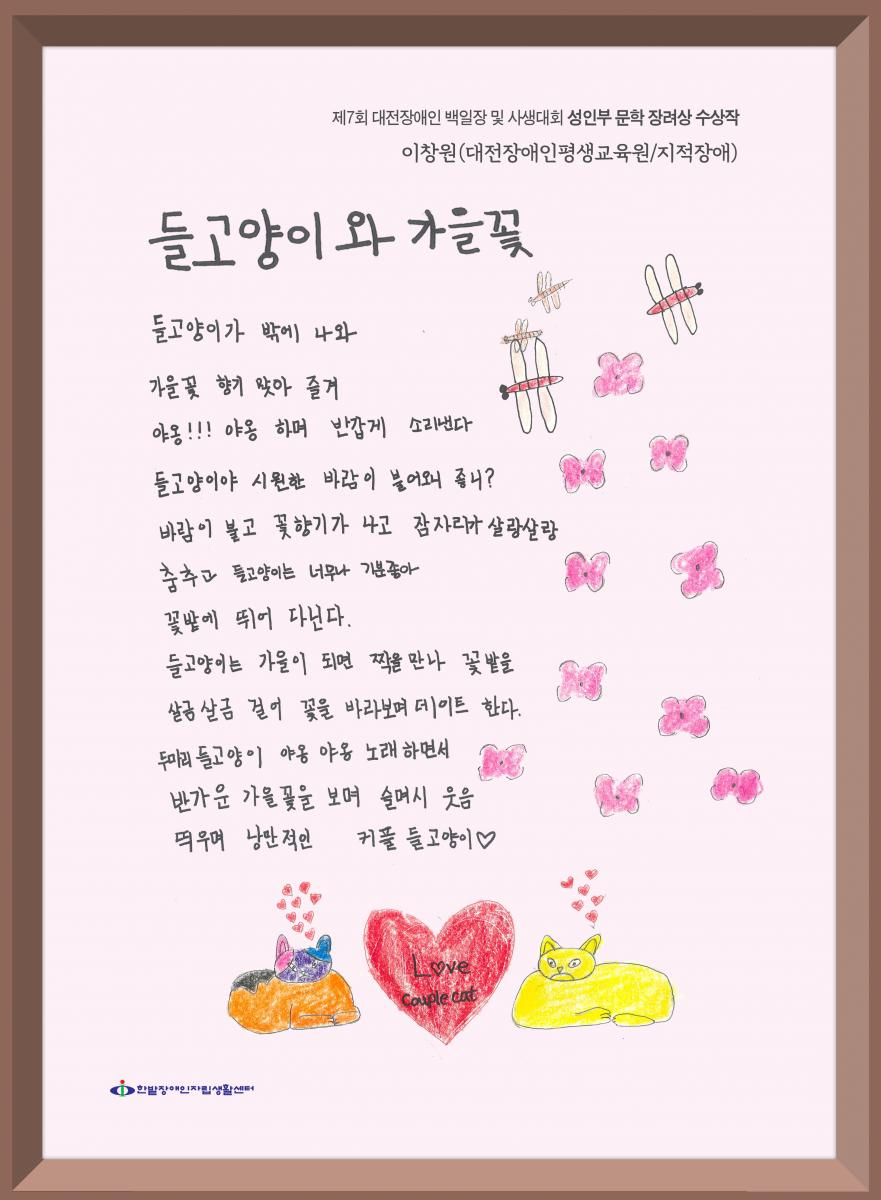 제7회 대전장애인 백일장 및 사생대회 성인부 문학 장려상 수상작
이창원(대전장애인평생교육원/지적장애)
들고양이와 가을꽃
들고양이가 밖에 나와
가을꽃 향기 맞아 즐겨
야옹!!! 야옹 하며 반갑게 소리낸다
들고양이야 시원한 바람이 불어와 좋니?
바람이 불고 꽃향기가 나고 잠자리가 살랑살랑
춤추고 들고양이는 너무나 기분좋아
꽃밭에 뛰어 다닌다.
들고양이는 가을이 되면 짝을 만나 꽃밭을
살금살금 걸어 꽃을 바라보며 데이트 한다.
두마리 들고양이 야옹 야옹 노래하면서
반가운 가을꽃을 보며 슬며시 웃음
띄우며 낭만적인 커플 들고양이♡
L♡ve
Couple cat
한밭장애인자립생활센터